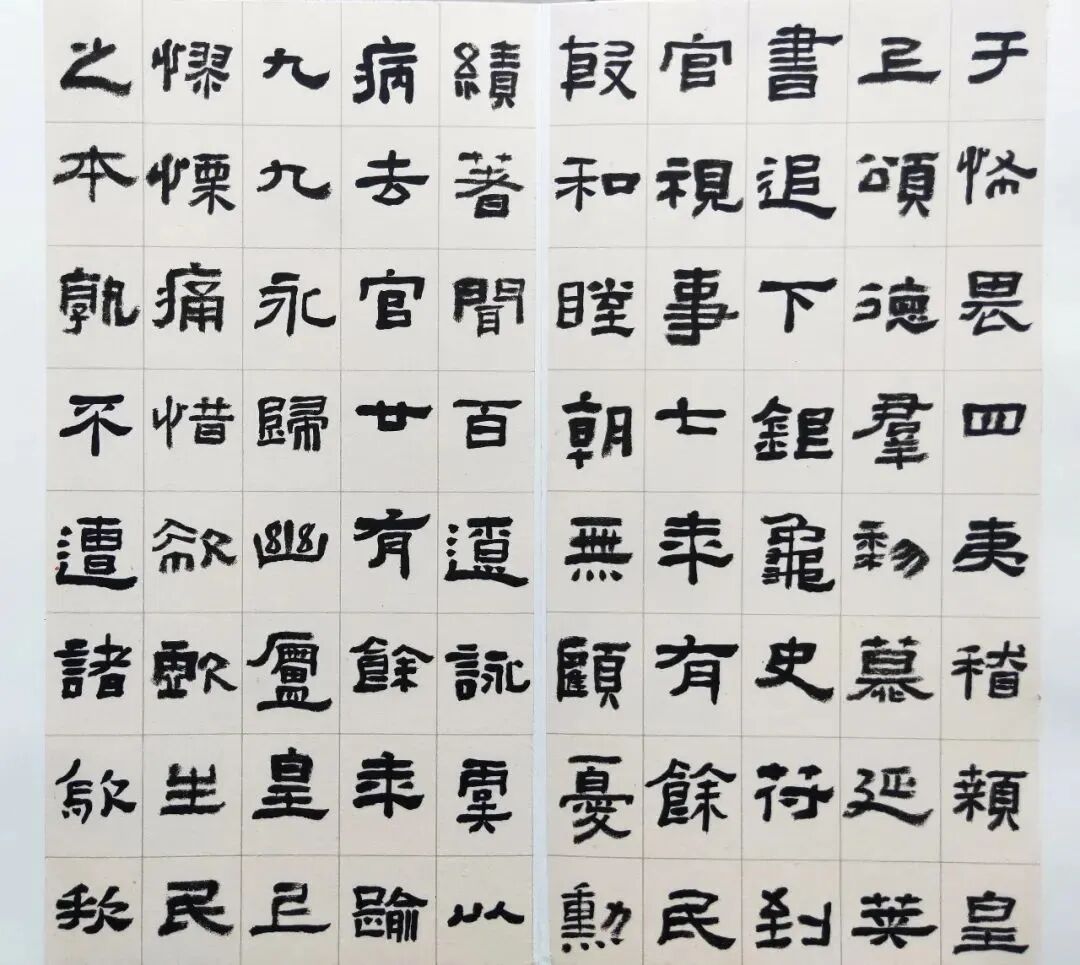 于怖畏四夷稽顙皇
上頌德羣黎慕延英
書追下鉅龜史符到
官視事七年有餘民
殷和睦朝無顧憂勳
績著聞百遼詠虞以
病去官廿有餘年踰
九九永歸幽廬皇上
憀慄痛惜欷歔生民
之本孰不遭諸歍